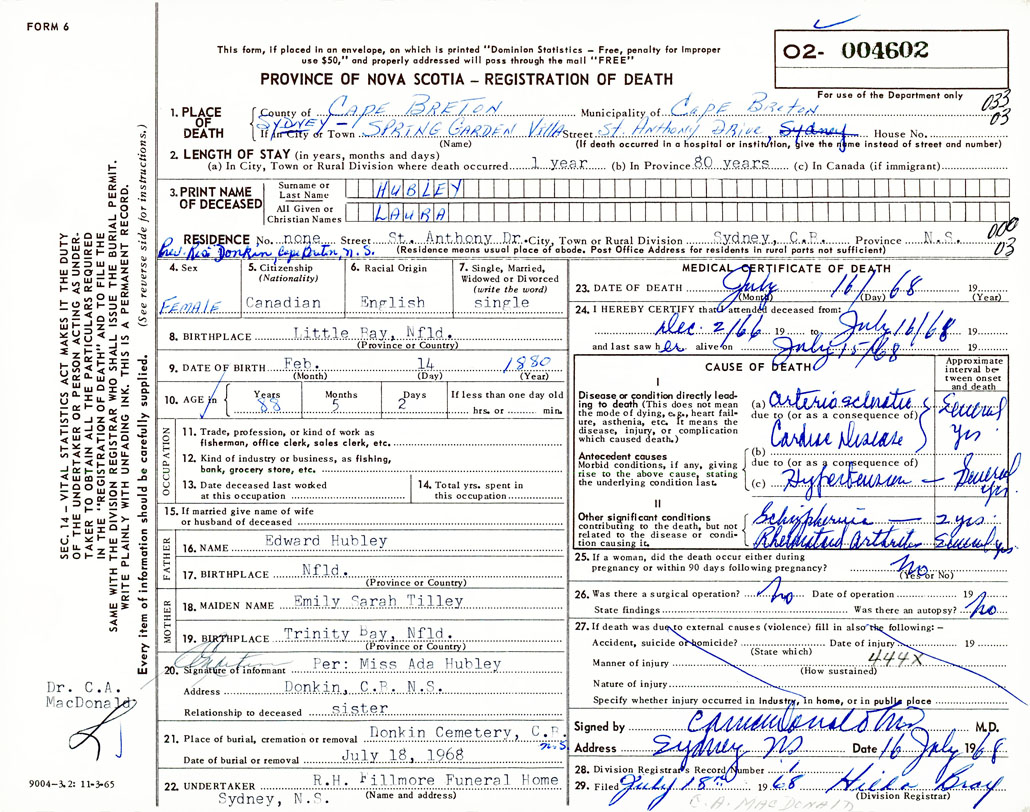 FORM 6
This form, if placed in an envelope, on which is printed "Dominion Statistics – Free, penalty for improper
use $50," and properly addressed will pass through the mail "FREE"
PROVINCE OF NOVA SCOTIA – REGISTRATION OF DEATH
02- 004602
For use of the Department only
033
03
1. PLACE OF DEATH
County of CAPE BRETON Municipality of CAPE BRETON
SYDNEY – If in City or Town SPRING GARDEN VILLA Street ST. ANTHONY DRIVE, SYDNEY House No.
(Name) (If death occurred in a hospital or institution, give the name instead of street and number)
2. LENGTH OF STAY (in years, months and days)
(a) In City, Town or Rural Division where death occurred 1 year (b) In Province 80 years (c) In Canada (if immigrant)
3. PRINT NAME OF DECEASED
Surname or Last Name HUBLEY
All Given or Christian Names LAURA
000
03
RESIDENCE No. none Street St. Anthony Dr. City, Town or Rural Division Sydney, C.B. Province N.S.
Prev. Res. Donkin, Cape Breton, N.S. (Residence means usual place of abode. Post Office Address for residents in rural parts not sufficient)
4. Sex
FEMALE
5. Citizenship (Nationality)
Canadian
6. Racial Origin
English
7. Single, Married, Widowed or Divorced (write the word)
single
8. BIRTHPLACE Little Bay, Nfld.
(Province or Country)
9. DATE OF BIRTH Feb. 14 1880
(Month) (Day) (Year)
10. AGE in Years 88 Months 5 Days 2 If less than one day old hrs. or min.
OCCUPATION
11. Trade, profession, or kind of work as
fisherman, office clerk, sales clerk, etc.
12. Kind of industry or business, as fishing,
bank, grocery store, etc.
13. Date deceased last worked
at this occupation
14. Total yrs. spent in
this occupation
15. If married give name of wife
or husband of deceased
FATHER
16. NAME Edward Hubley
17. BIRTHPLACE Nfld.
(Province or Country)
MOTHER
18. MAIDEN NAME Emily Sarah Tilley
19. BIRTHPLACE Trinity Bay, Nfld.
(Province or Country)
20. Signature of informant Per: Miss Ada Hubley
Address Donkin, C.B. N.S.
Relationship to deceased sister
21. Place of burial, cremation or removal Donkin Cemetery, C.B.
N.S.
Date of burial or removal July 18, 1968
22. UNDERTAKER R.H. Fillmore Funeral Home
Sydney, N.S. (Name and address)
MEDICAL CERTIFICATE OF DEATH
23. DATE OF DEATH July 16/68 19
(Month) (Day) (Year)
24. I HEREBY CERTIFY that I attended deceased from:
Dec. 2/66 19 to July 16/68 19
and last saw her alive on July 15/68 19
CAUSE OF DEATH
Approximate interval between onset and death
I
Disease or condition directly leading to death (This does not mean
the mode of dying, e.g., heart failure, asthenia, etc. It means the
disease, injury, or complication
which caused death.)
(a) Arteriosclerotic
due to (or as a consequence of)
Cardiac Disease
Several
yrs.
Antecedent causes
Morbid conditions, if any, giving
rise to the above cause, stating
the underlying condition last.
(b)
due to (or as a consequence of)
(c) Hypertension – Several
yrs.
II
Other significant conditions
contributing to the death, but not
related to the disease or condition causing it.
Schizophrenia – 2 yrs.
Rheumatoid Arthritis Several yrs
25. If a woman, did the death occur either during
pregnancy or within 90 days following pregnancy? No
(Yes or No)
26. Was there a surgical operation? No Date of operation 19
State findings Was there an autopsy? No
27. If death was due to external causes (violence) fill in also the following: –
Accident, suicide or homicide? Date of injury 19
(State which)
444X
Manner of injury
(How sustained)
Nature of injury
Specify whether injury occurred in industry, in home, or in public place
Signed by C A MacDonald M.D.
Address Sydney NS Date 16 July 1968
28. Division Registrar's Record Number 1
29. Filed July 18th 1968 Hilda Bray
(Division Registrar)
C. A. MACDONALD
SEC. 14 – VITAL STATISTICS ACT MAKES IT THE DUTY
OF THE UNDERTAKER OR PERSON ACTING AS UNDER-
TAKER TO OBTAIN ALL THE PARTICULARS REQUIRED
IN THE "REGISTRATION OF DEATH" AND TO FILE THE
SAME WITH THE DIVISION REGISTRAR WHO SHALL ISSUE THE BURIAL PERMIT.
WRITE PLAINLY WITH UNFADING INK. THIS IS A PERMANENT RECORD.
Every item of information should be carefully supplied. (See reverse side for instructions.)
Dr. C.A.
MacDonald
9004–3.2: 11-3-65